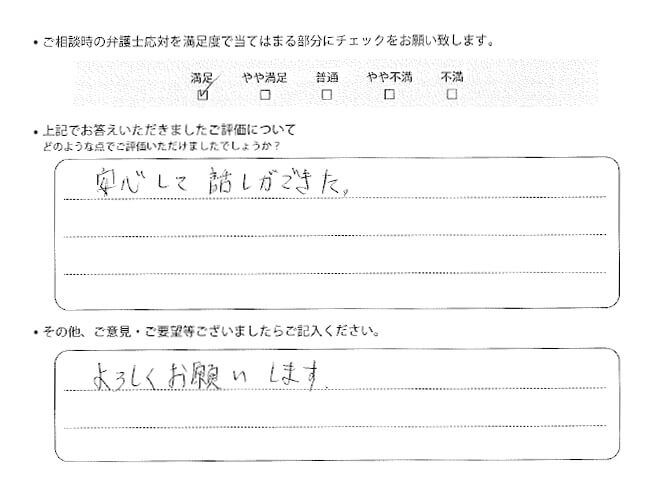 ・ご相談時の弁護士応対を満足度で当てはまる部分にチェックをお願い致します。
満足 やや満足 普通 やや不満 不満
☑ □ □ □ □
・上記でお答えいただきましたご評価について
どのような点でご評価いただけましたでしょうか？
安心して話しができた。
・その他、ご意見・ご要望等ございましたらご記入ください。
よろしくお願いします.